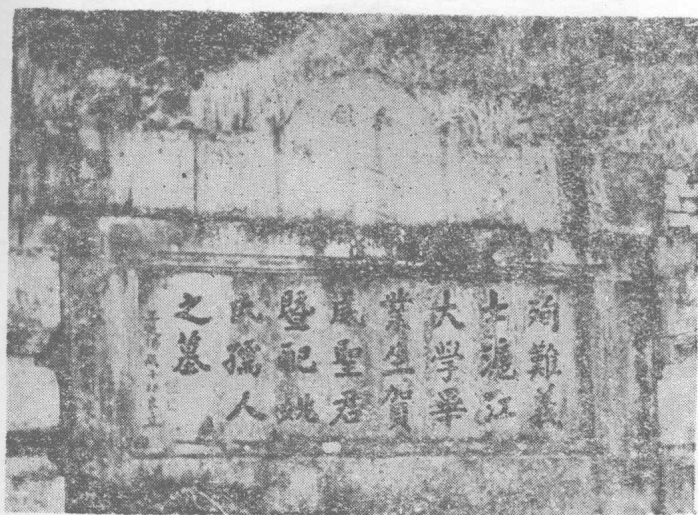 殉難義
士滬江
大學畢
業生賀
威聖君
暨配姚
氏孺人
之墓